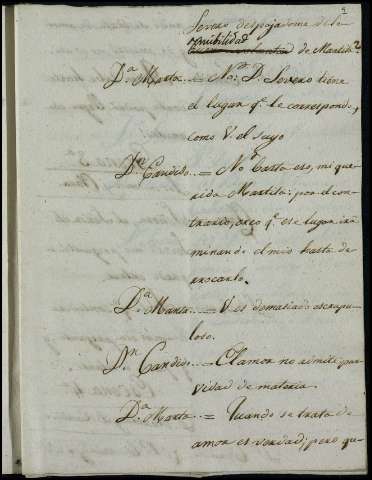 Severo despojadome de la
sensibilidad de Martita?
Dª Marta = No: D. Severo tiene
el lugar qᵉ le corresponde,
como V. el suyo
Dⁿ Candido = No basta eso, mi que
rida Martita: por el con
trario, creo qᵉ ese lugar irá
minando el mio hasta de
rrocarlo.
Dª Marta = V. es demasiado escrupu
loso.
Dⁿ Candido = El amor no admite par
vidad de materia.
Dª Marta = Cuando se trata de
amor es verdad; pero qu-